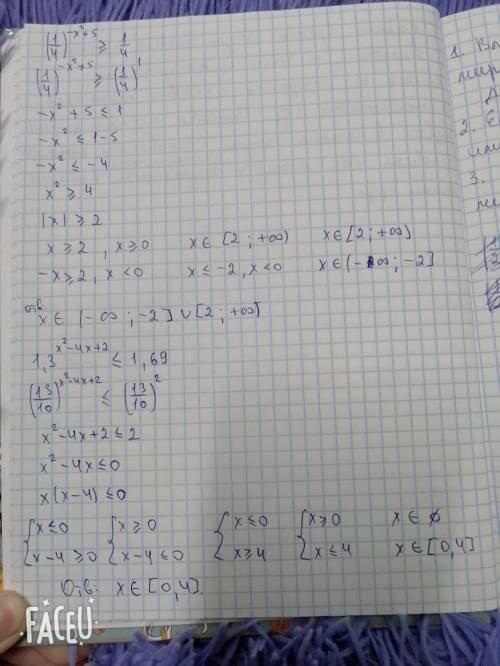 (1/4)^(-x²+5) ≥ 1/4
(1/4)^(-x²+5) ≥ (1/4)^1
-x² + 5 ≤ 1
-x² ≤ 1-5
-x² ≤ -4
x² ≥ 4
|x| ≥ 2
x ≥ 2 , x ≥ 0 x ∈ [2 ; +∞) x ∈ [2 ; +∞)
-x ≥ 2, x < 0 x ≤ -2, x < 0 x ∈ (-∞ ; -2]
отв x ∈ (-∞ ; -2] ∪ [2 ; +∞)
1,3^(x²-4x+2) ≤ 1,69
(13/10)^(x²-4x+2) ≤ (13/10)^2
x² -4x+2 ≤ 2
x² -4x ≤ 0
x(x-4) ≤ 0
{ x ≤ 0 { x ≥ 0 { x ≤ 0 { x ≥ 0 x ∈ ∅
x-4 ≥ 0 x-4 ≤ 0 x ≥ 4 x ≤ 4 x ∈ [0,4]
О-в: x ∈ [0,4].
1.
2.
3.
FACEU